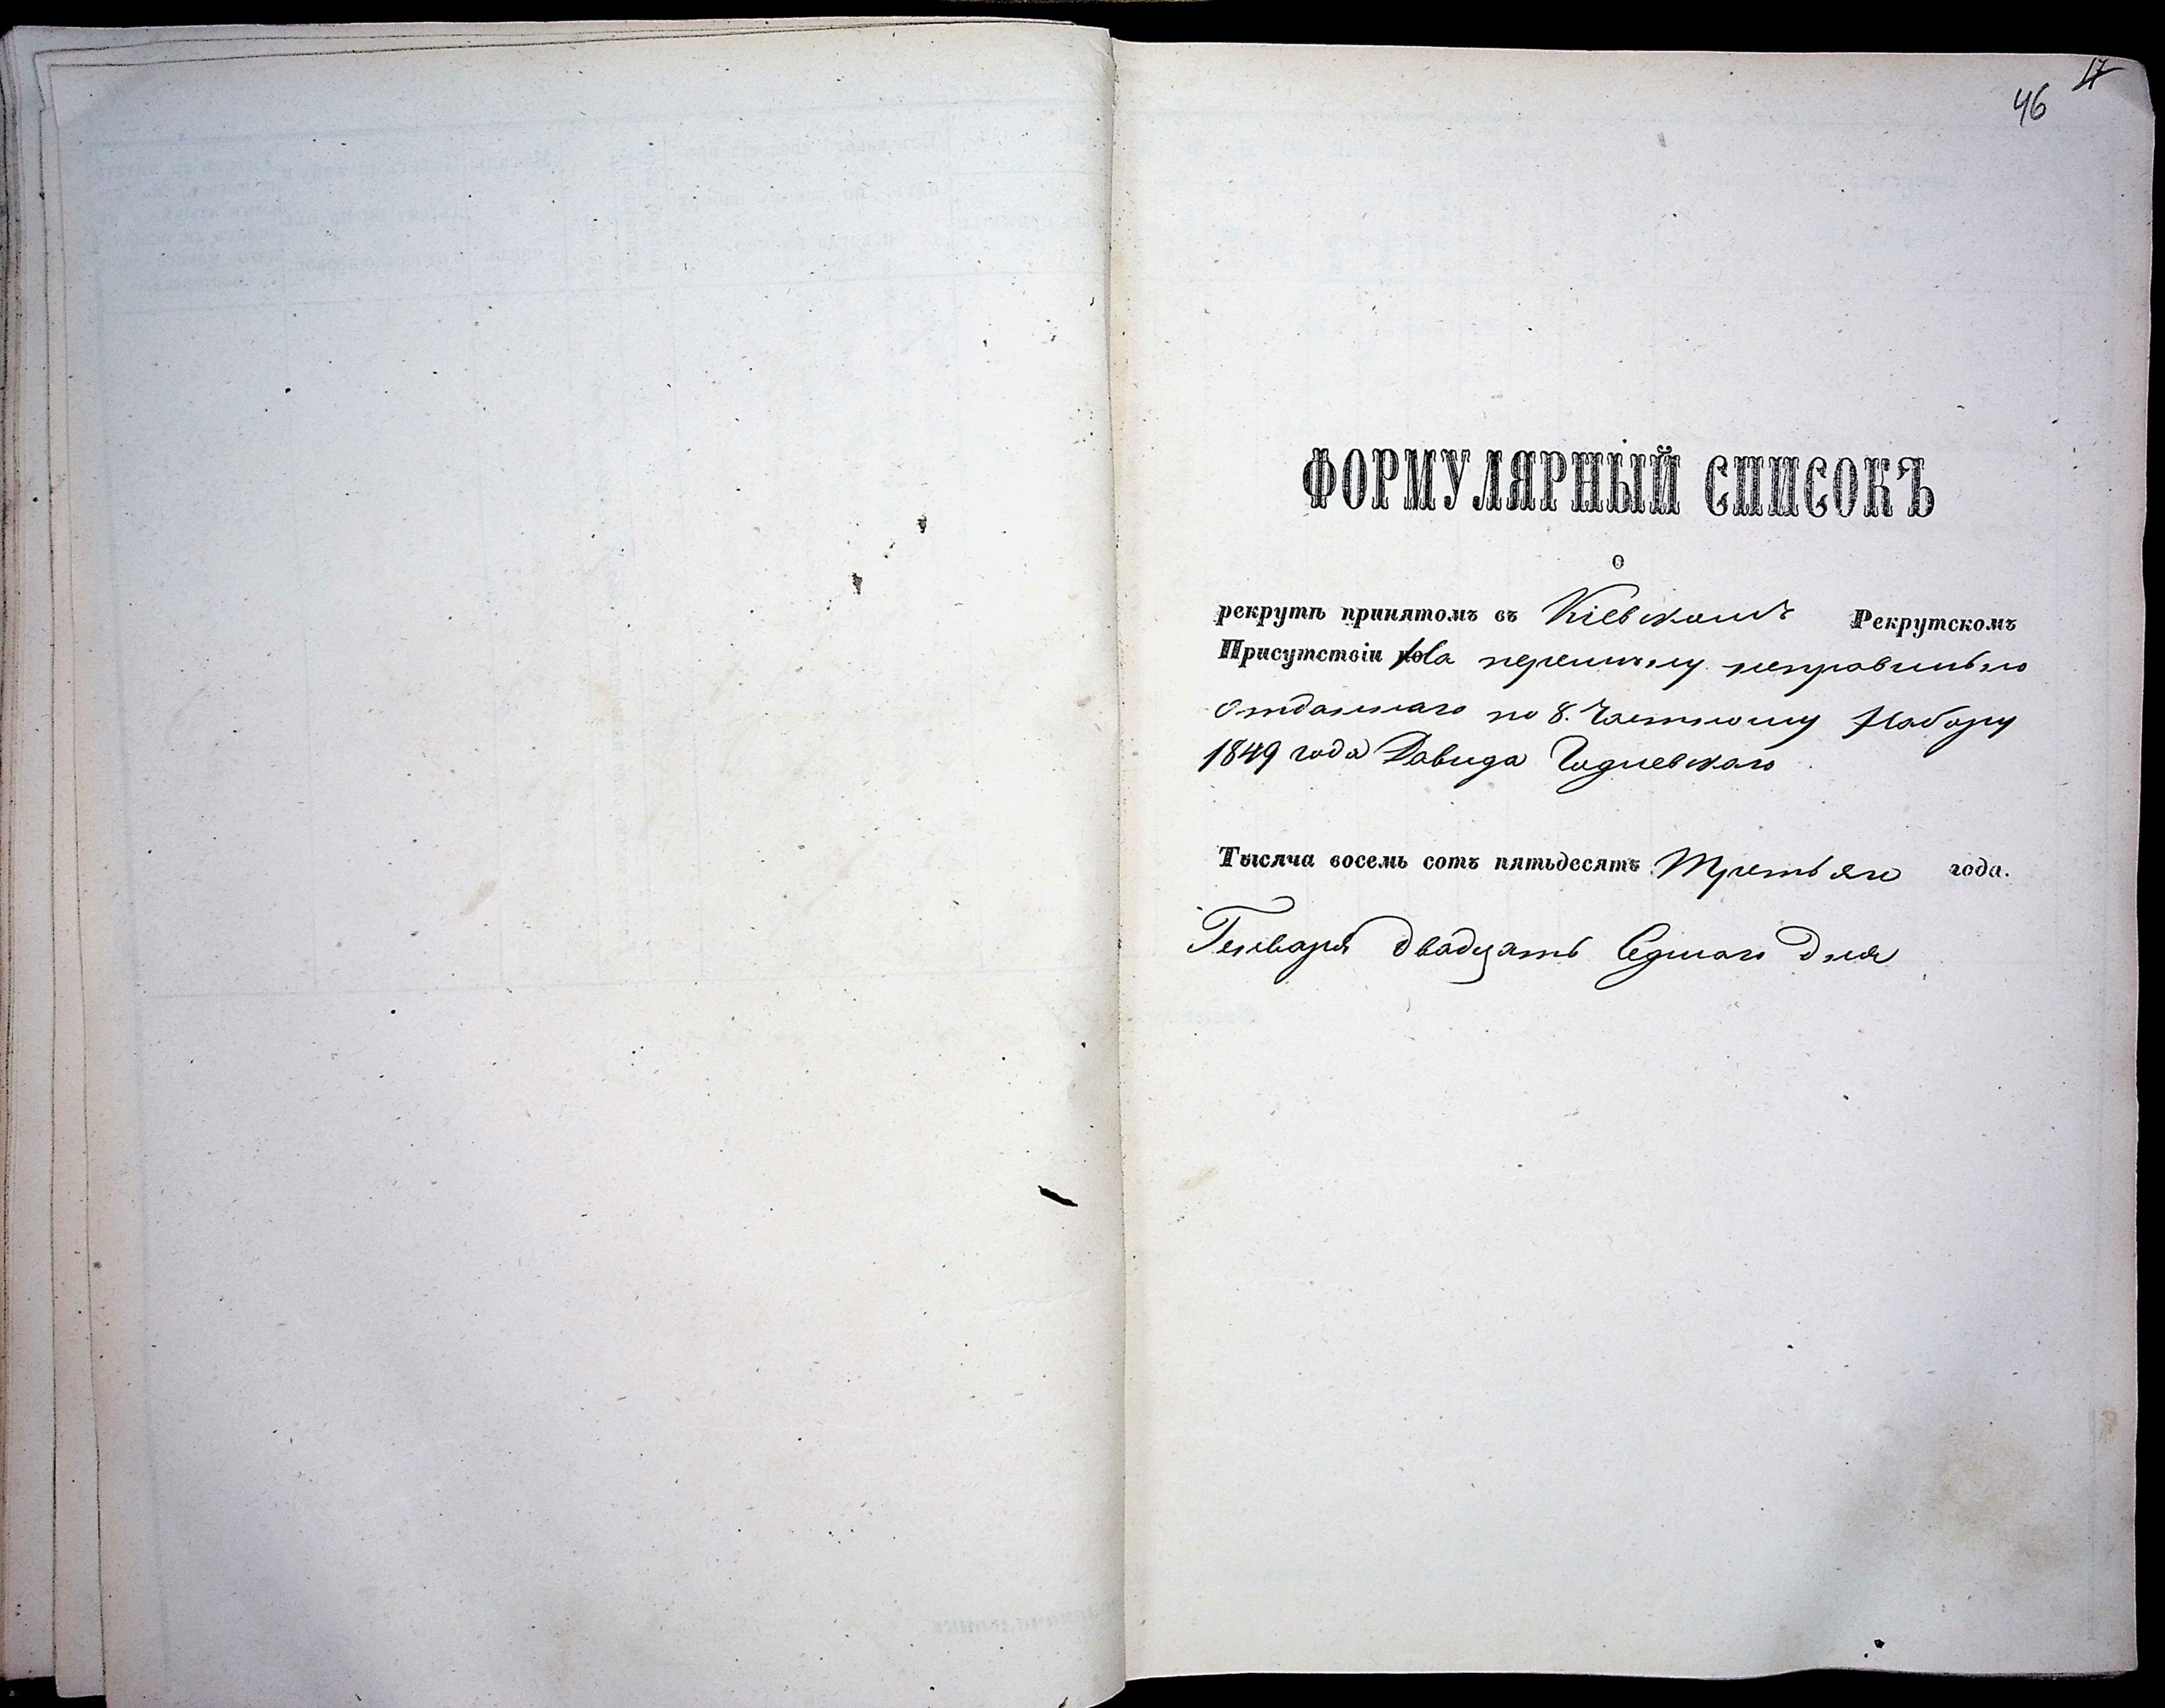 17
46
ФОРМУЛЯРНЫЙ СПИСОКЪ
о
рекрутѣ принятомъ въ Кіевскомъ Рекрутскомъ
Присутствіи на перемѣну неправильно
отданнаго по 8. Частному Набору
1849 года Давида
Тысяча восемь сотъ пятьдесятъ Третьяго года.
Генваря двадцать Седмаго дня